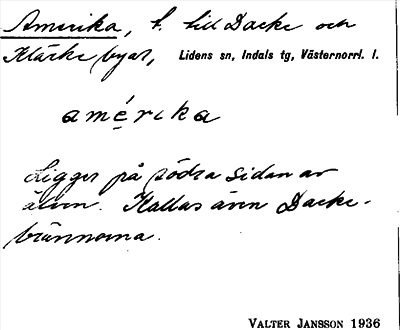 Amerika, t. till Dacke och
Klärke byar, Lidens sn, Indals tg, Västernorrl. l.
amérika
Ligger på södra sidan av
älven. Kallas även Dacke-
brännorna.
VALTER JANSSON 1936